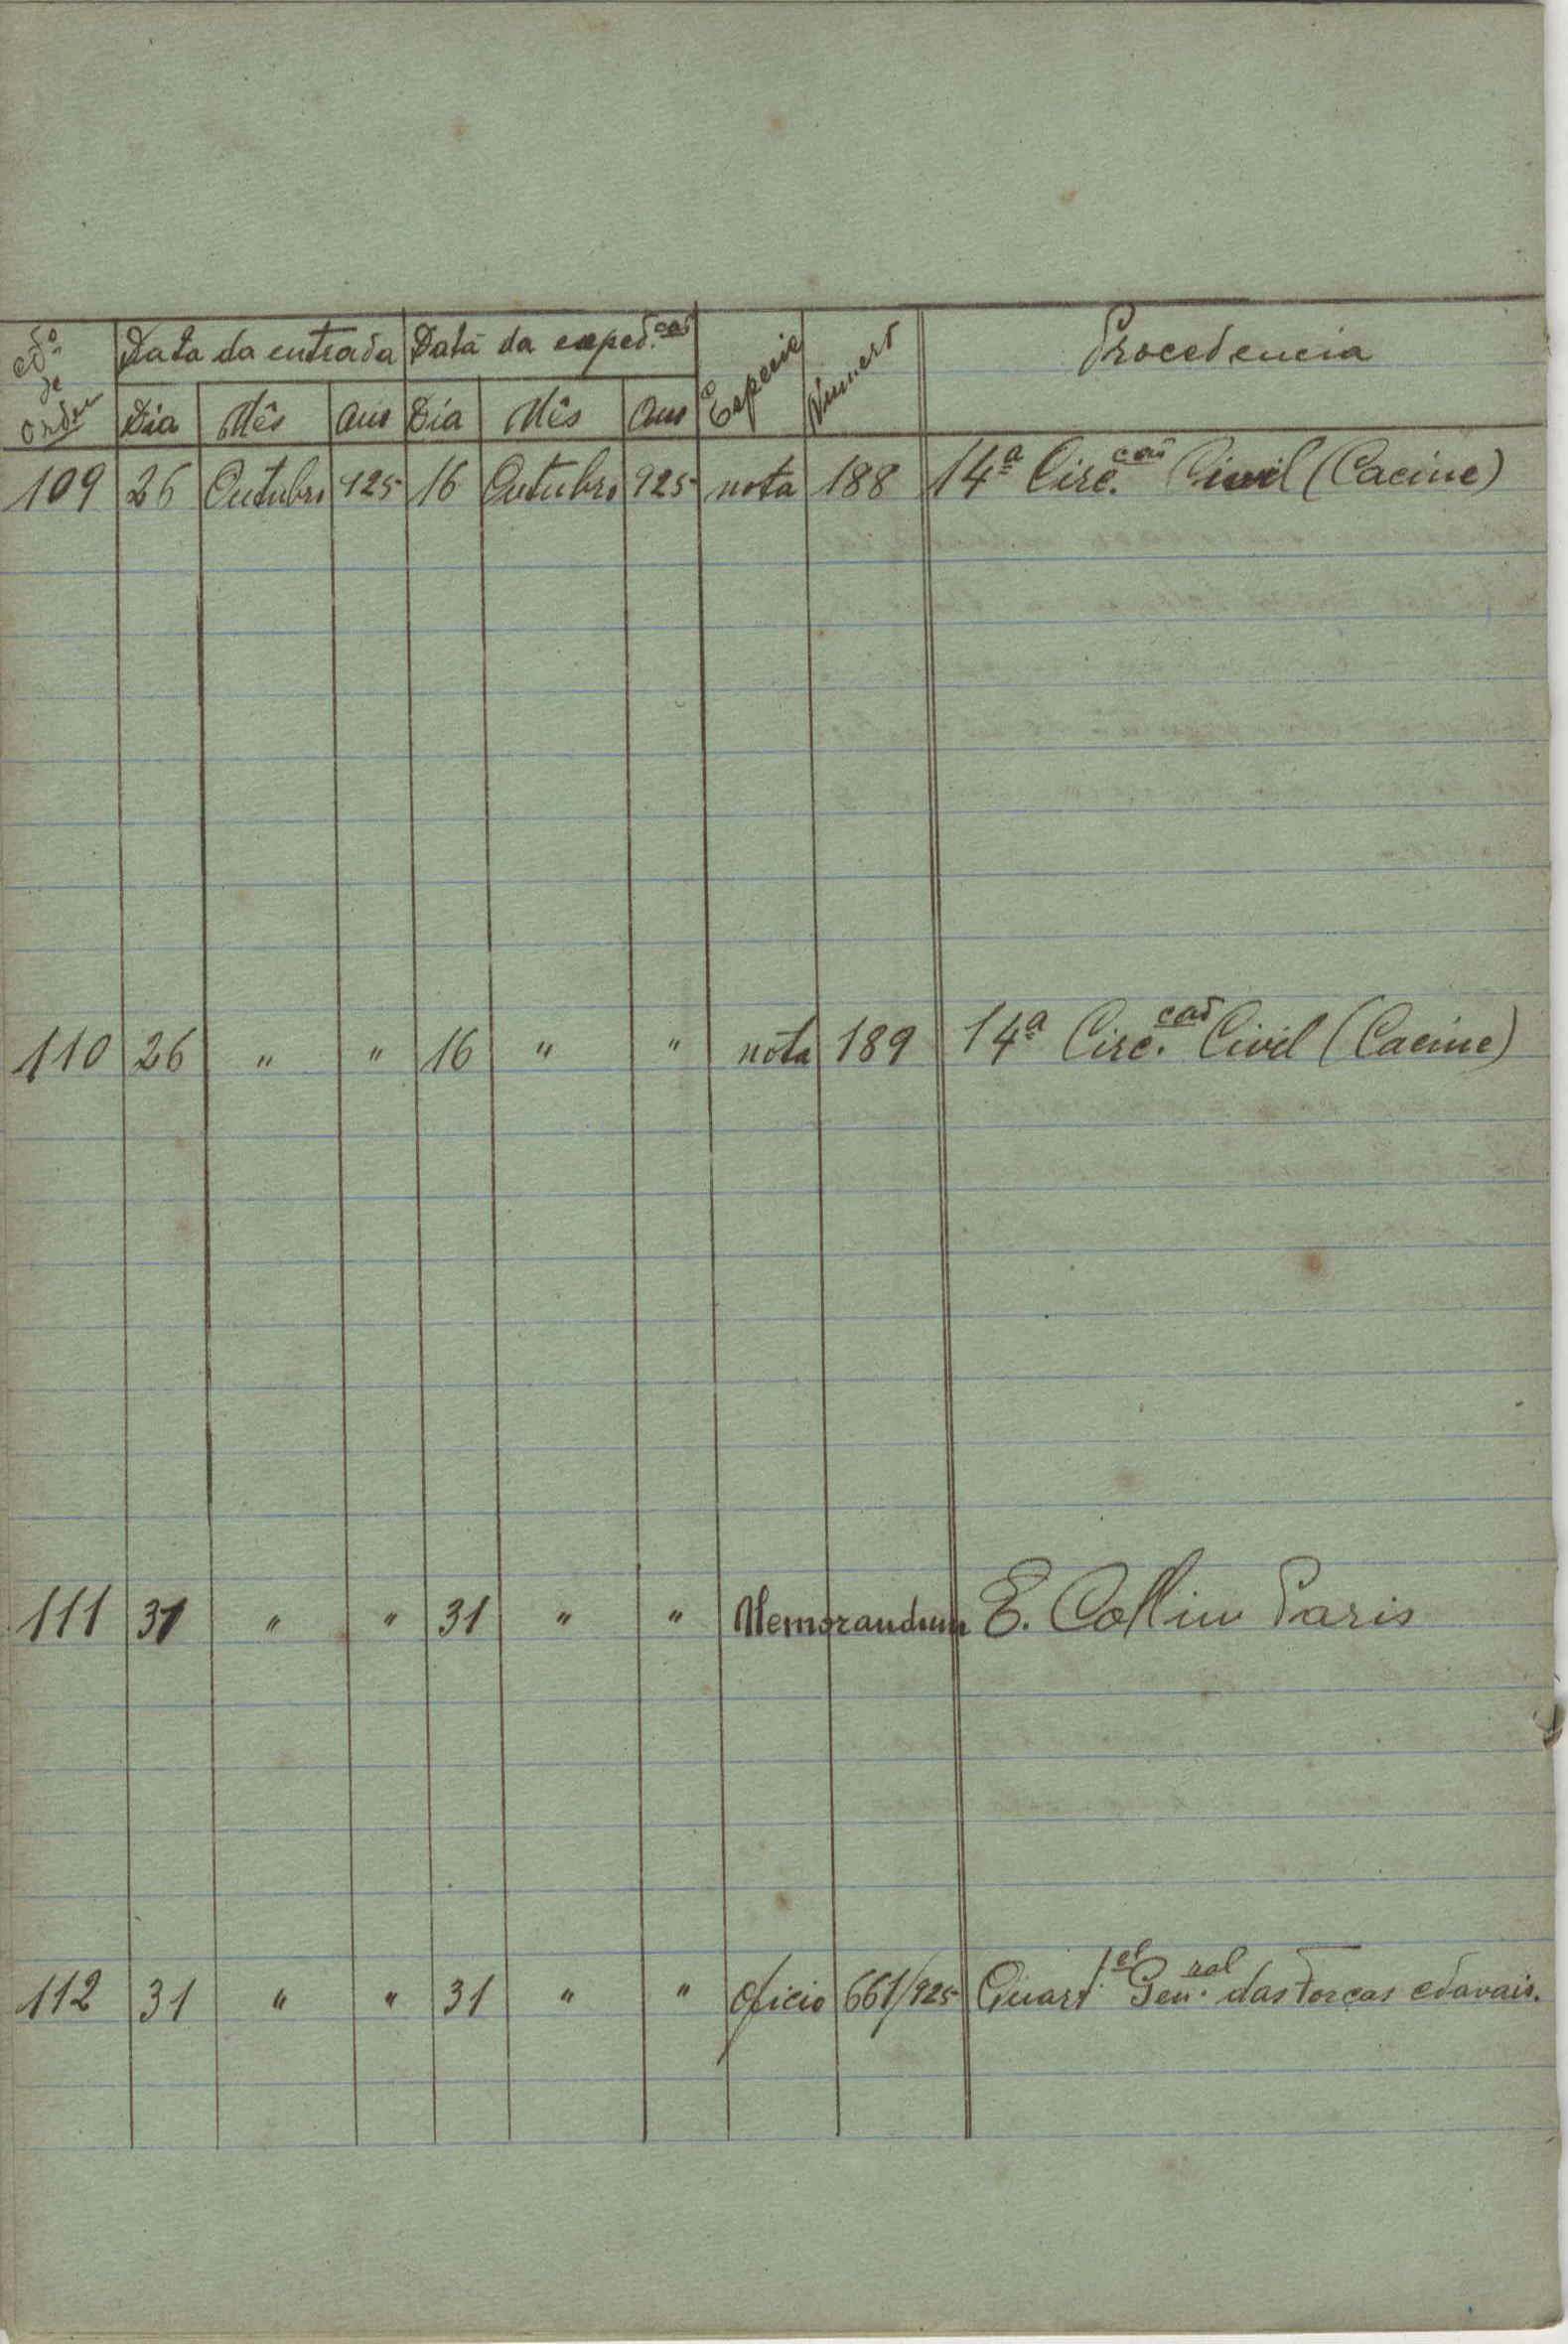 Nº de Ordem Data da entrada Data da exped.ção Especie Numero Procedencia
Dia Mês Ano Dia Mês Ano
109 26 Outubro 925 16 Outubro 925 nota 188 14ª Circ.ção Civil (Cacine)
110 26 " " 16 " " nota 189 14ª Circ.ção Civil (Cacine)
111 31 " " 31 " " Memorandum E. Collin Paris
112 31 " " 31 " " Oficio 661/925 Quart.el Gen.ral das Forças Navais.